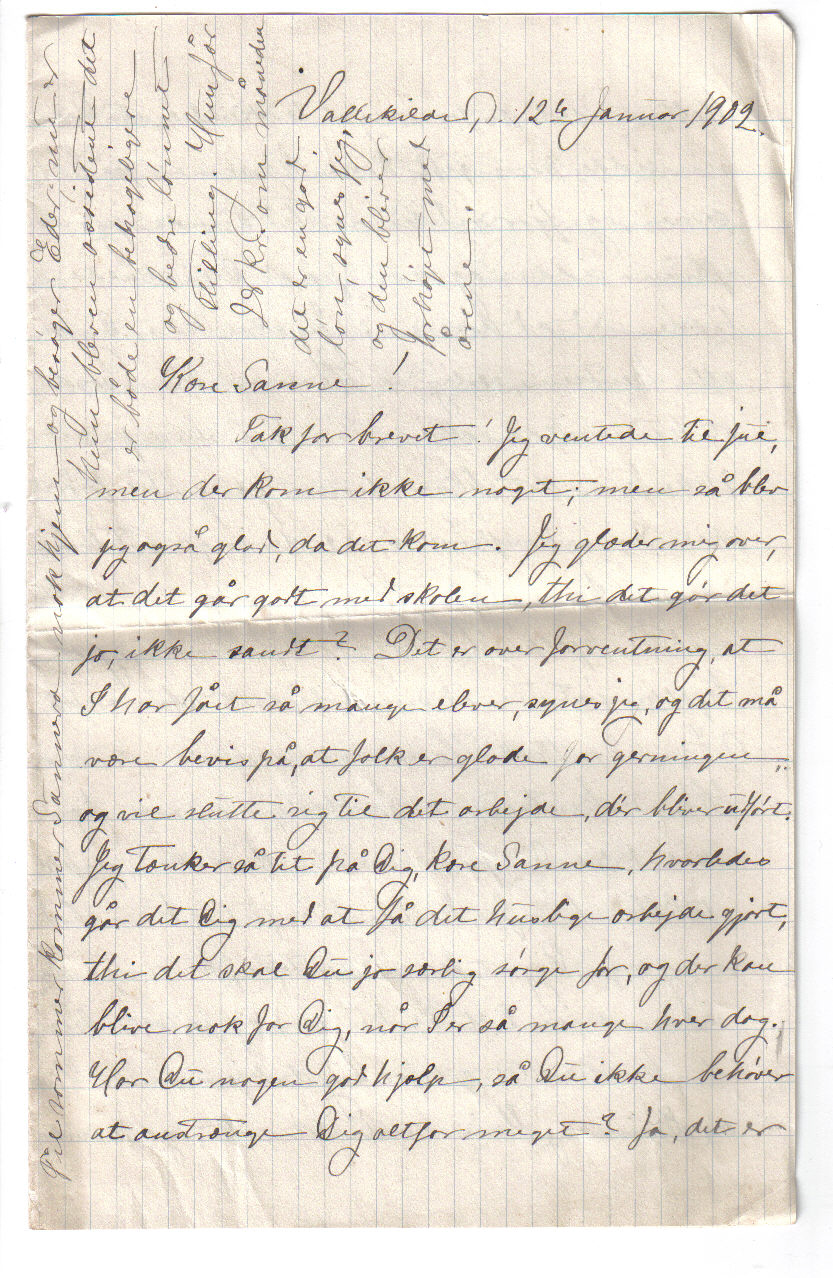 Vallekilde, D. 12te Januar 1902.
Kære Sanne!
Tak for brevet! Jeg ventede til jul,
men der kom ikke noget; men så blev
jeg også glad, da det kom. Jeg glæder mig over,
at det går godt med skolen, thi det gør det
jo, ikke sandt? Det er over forventning, at
I har fået så mange elever, synes jeg, og det må
være bevis på, at folk er glade for gerningen
og vil slutte sig til det arbejde, dér bliver udført.
Jeg tænker så tit på Dig, kære Sanne, hvorledes
går det Dig med at få det huslige arbejde gjort,
thi det skal Du jo særlig sørge for, og der kan
blive nok for Dig, når I er så mange hver dag.
Har Du nogen god hjælp, så Du ikke behøver
at anstrænge Dig altfor meget? Ja, det er
Til sommer kommer Sanners nok hjem og besøger Eder, nu er
hun bleven assistent det
er både en behageligere
og bedre lønnet
stilling. Hun får
28 kr. om måneden
det er en god
løn, synes jeg,
og den bliver
forhøjet med
årene.